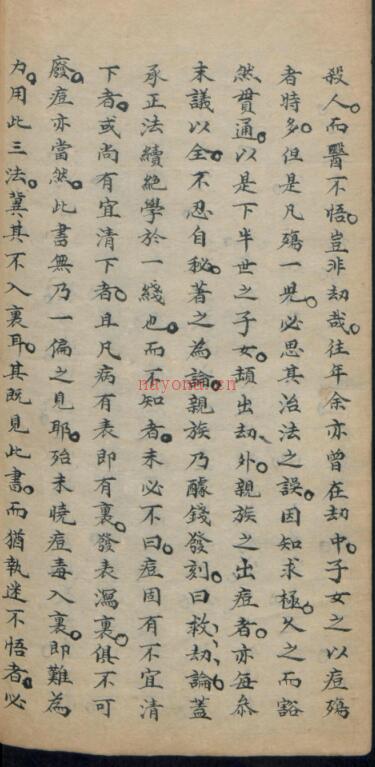 殺人。而醫不悟。豈非劫哉。往年余亦曾在劫中。子女之以痘殤
者時多。但是凡殤一兒。必思其治法之誤。因知求極。久之而豁
然貫通。以是下半世之子女。頡出劫外。親族之出痘者。亦每叅
末議以全。不忍自秘。著之為論。親族乃醵錢發刻。曰救劫論。蓋
承正法續絶學於一綫也。而不知者。未必不曰。痘固有不宜清
下者。或尚有宜清下者。且凡病有表即有裏。發表瀉裏。俱不可
廢。痘亦當然。此書無乃一偏之見耶。殆未曉痘毒入裏。即難為
力。用此三法。冀其不入裏耳。其既見此書。而猶執迷不悟者。必
nayona.cn